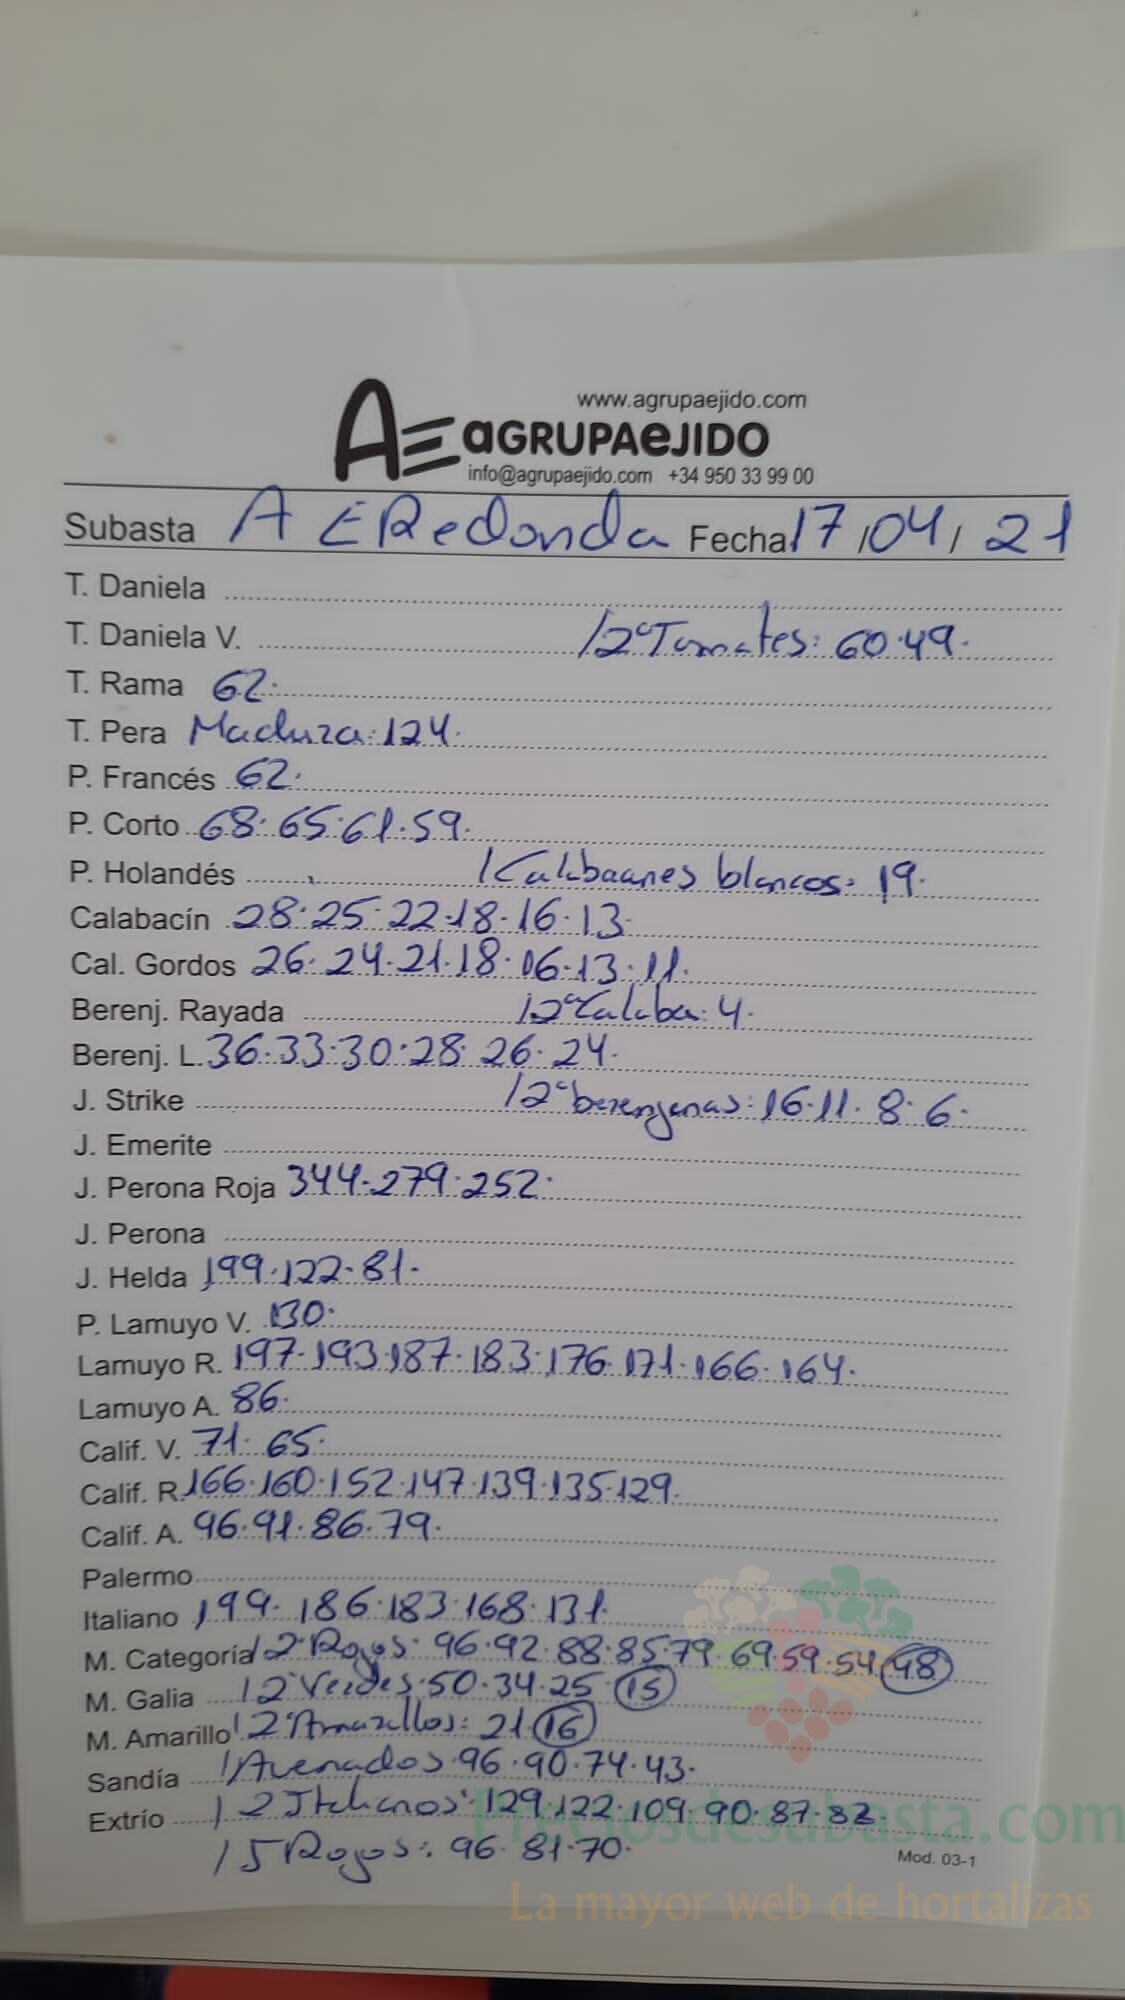 www.agrupaejido.com
AE aGRUPAeJIDO
info@agrupaejido.com +34 950 33 99 00
Subasta A E Redonda Fecha 17/04/21
T. Daniela
T. Daniela V. /2ª Tomates: 60.49.
T. Rama 62.
T. Pera Madura: 124.
P. Francés 62.
P. Corto 68.65.61.59.
P. Holandés / blancos: 19.
Calabacín 28.25.22.18.16.13.
Cal. Gordos 26.24.21.18.16.13.11.
Berenj. Rayada /2ª Calaba: 4.
Berenj. L. 36.33.30.28.26.24.
J. Strike /2ª berenjenas: 16.11.8.6.
J. Emerite
J. Perona Roja 344.279.252.
J. Perona
J. Helda 199.122.81.
P. Lamuyo V. 130.
Lamuyo R. 197.193.187.183.176.171.166.164.
Lamuyo A. 86.
Calif. V. 71.65.
Calif. R. 166.160.152.147.139.135.129.
Calif. A. 96.91.86.79.
Palermo
Italiano 199.186.183.168.131.
M. Categoría /2ª Rojos: 96.92.88.85.79.69.59.54.48
M. Galia /2ª Verdes: 50.34.25.15
M. Amarillo /2ª Amarillos: 21.16
Sandía /Avenados: 96.90.74.43.
Extrío /2 Italianos: 129.122.109.90.87.82.
/5 Rojos: 96.81.70.
Mod. 03-1
Preciosdesubasta.com
La mayor web de hortalizas